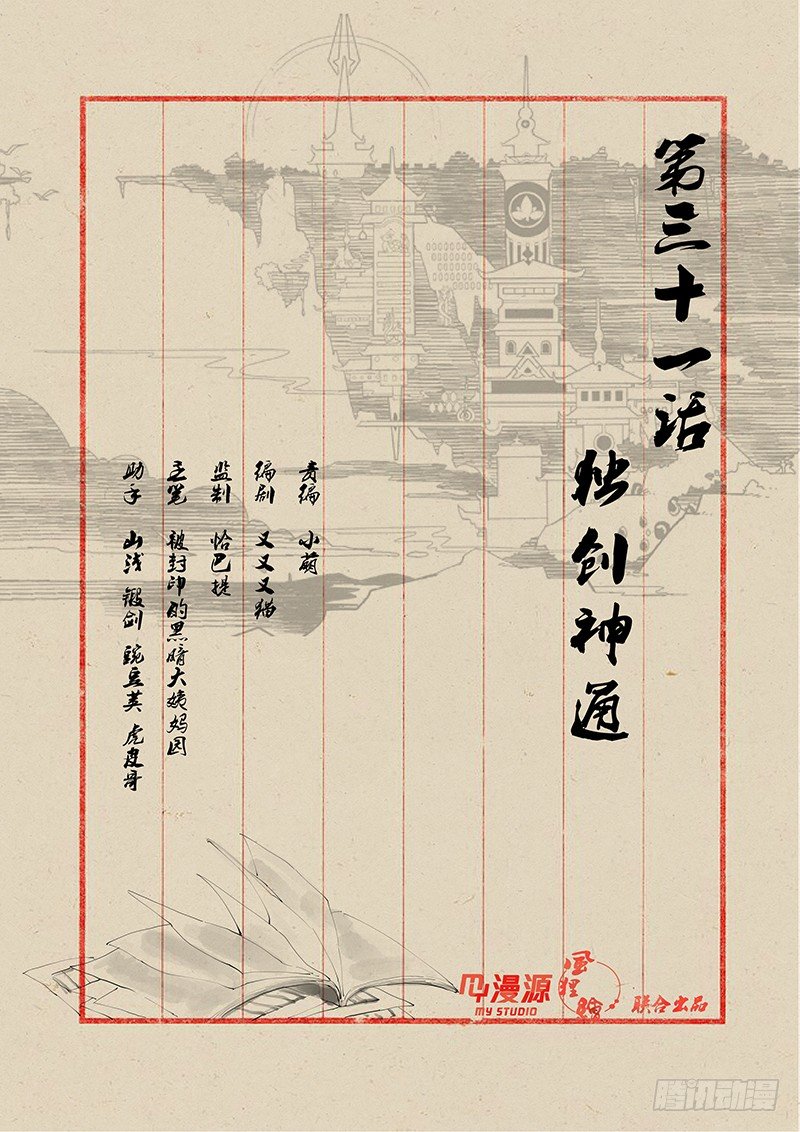 第三十一话
独创神通
责编 小萌
编剧 又又又猫
监制 恰巴提
主笔 被封印的黑暗大姨妈园
助手 山浅 锻剑 豌豆荚 虎皮哥
漫源
MY STUDIO
联合出品
腾讯动漫